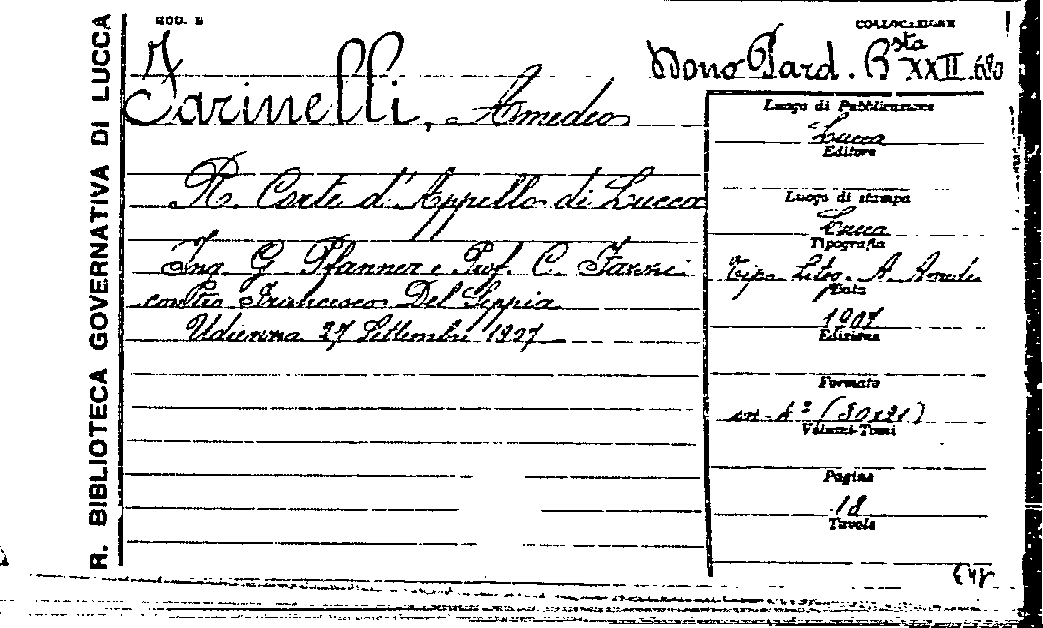 R. BIBLIOTECA GOVERNATIVA DI LUCCA
MOD. B
COLLOCAZIONE
Dono Pard. Bsta XXII.680
Farinelli, Amedeo
R. Corte d'Appello di Lucca
Ing. G Pfanner e Prof. C.
contro Francesco Del Seppia
Udienza 27 Settembre 1907
Luogo di Pubblicazione
Lucca
Editore
Luogo di stampa
Lucca
Tipografia
Tip. Lito. A. Amedei
Data
1907
Edizione
Formato
in-4º (30x21)
Volumi-Tomi
Pagine
18
Tavole